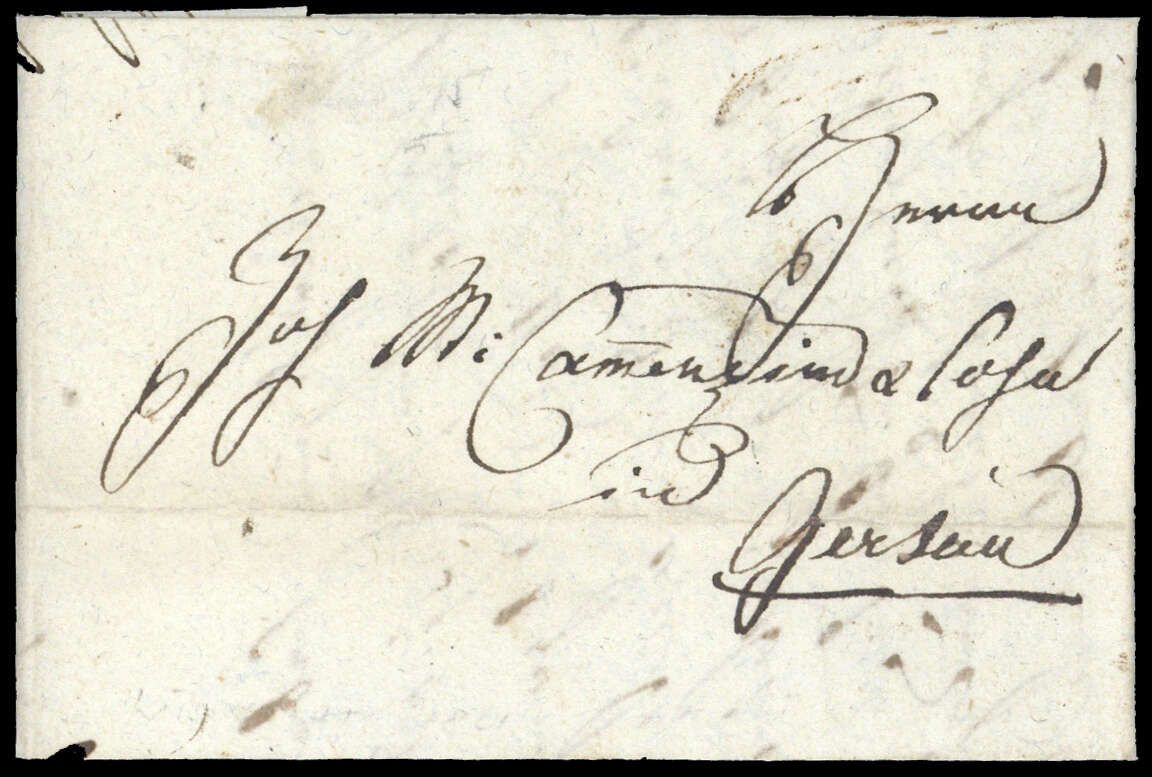 Herrn
Jos M: Cam̄enzind & Sohn
in
Gersau